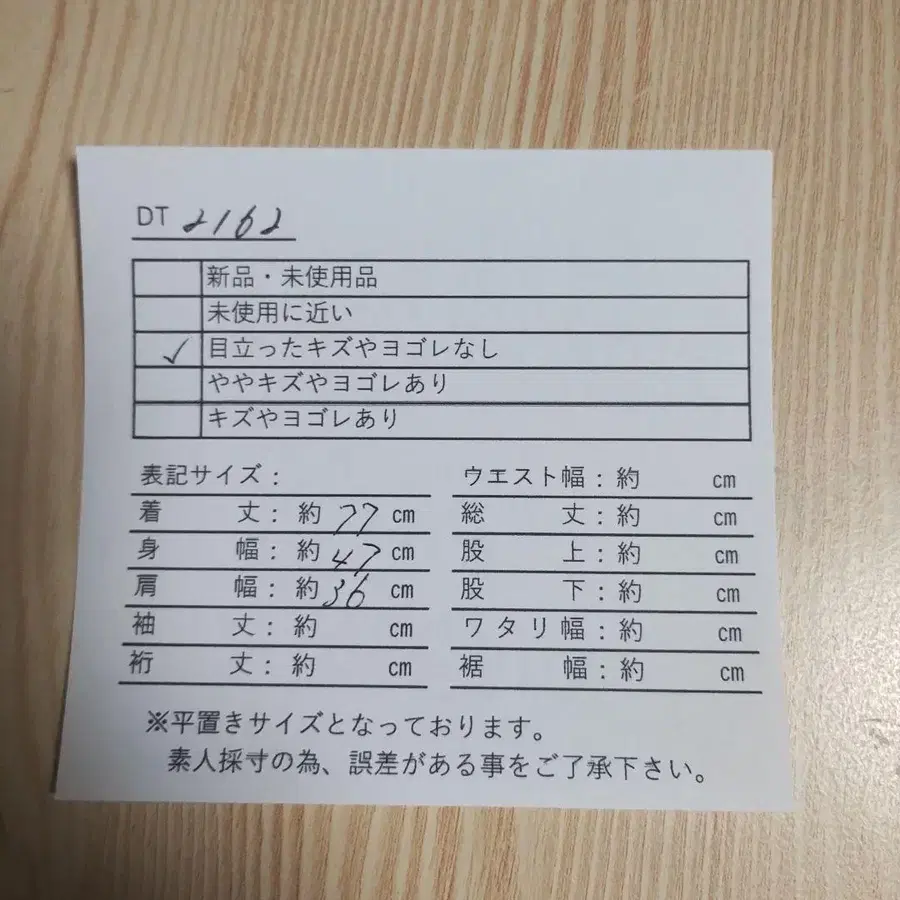 DT 2162
新品・未使用品
未使用に近い
✓ 目立ったキズやヨゴレなし
ややキズやヨゴレあり
キズやヨゴレあり
表記サイズ:
着丈:約 77 cm
身幅:約 47 cm
肩幅:約 36 cm
袖丈:約 cm
裄丈:約 cm
ウエスト幅:約 cm
総丈:約 cm
股上:約 cm
股下:約 cm
ワタリ幅:約 cm
裾幅:約 cm
※平置きサイズとなっております。
素人採寸の為、誤差がある事をご了承下さい。